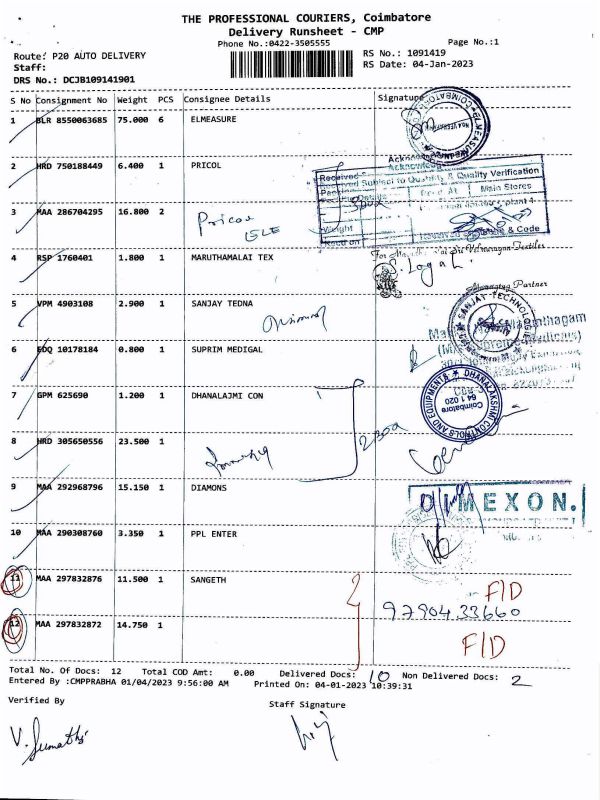 THE PROFESSIONAL COURIERS, Coimbatore
Delivery Runsheet - CMP
Phone No.:0422-3505555
Page No.:1
Route: P20 AUTO DELIVERY
RS No.: 1091419
Staff:
RS Date: 04-Jan-2023
DRS No.: DCJB109141901
S No Consignment No Weight PCS Consignee Details Signature
1 BLR 8550063685 75.000 6 ELMEASURE
2 HRD 750188449 6.400 1 PRICOL
Received Subject to Quantity & Quality Verification
Main Stores
3 MAA 286704295 16.800 2 Pricol
Weight
& Code
4 RSP 1760401 1.800 1 MARUTHAMALAI TEX
S. Loga
Partner
5 VPM 4903108 2.900 1 SANJAY TEDNA
SANJAY TECHNOLOGIES
6 EDQ 10178184 0.800 1 SUPRIM MEDIGAL
7 GPM 625690 1.200 1 DHANALAJMI CON
DHANALAKSHMI CONTROLS AND EQUIPMENTS
Coimbatore
641 020
8 HRD 305650556 23.500 1
9 MAA 292968796 15.150 1 DIAMONS
DIMEXON.
10 MAA 290308760 3.350 1 PPL ENTER
11 MAA 297832876 11.500 1 SANGETH
F/D
97904 33660
12 MAA 297832872 14.750 1
F/D
Total No. Of Docs: 12 Total COD Amt: 0.00 Delivered Docs: 10 Non Delivered Docs: 2
Entered By :CMPPRABHA 01/04/2023 9:56:00 AM Printed On: 04-01-2023 10:39:31
Verified By
Staff Signature
V. Sumathi